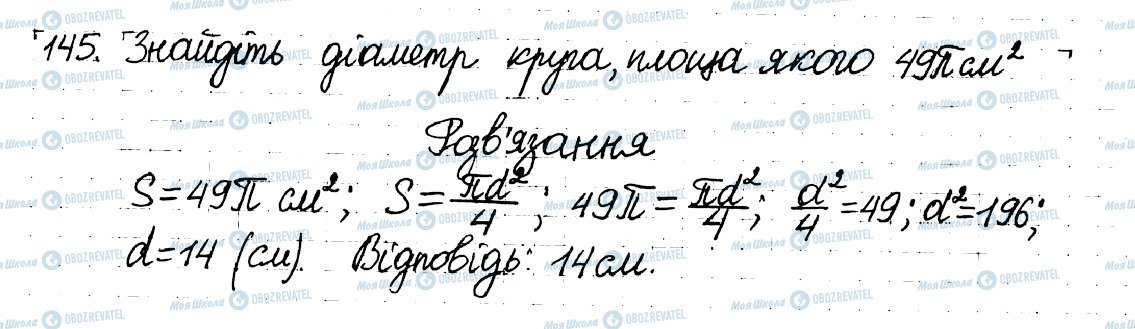 145. Знайдіть діаметр круга, площа якого 49π см²
Розв'язання
S=49π см²; S=πd²/4; 49π=πd²/4; d²/4=49; d²=196;
d=14 (см). Відповідь: 14см.